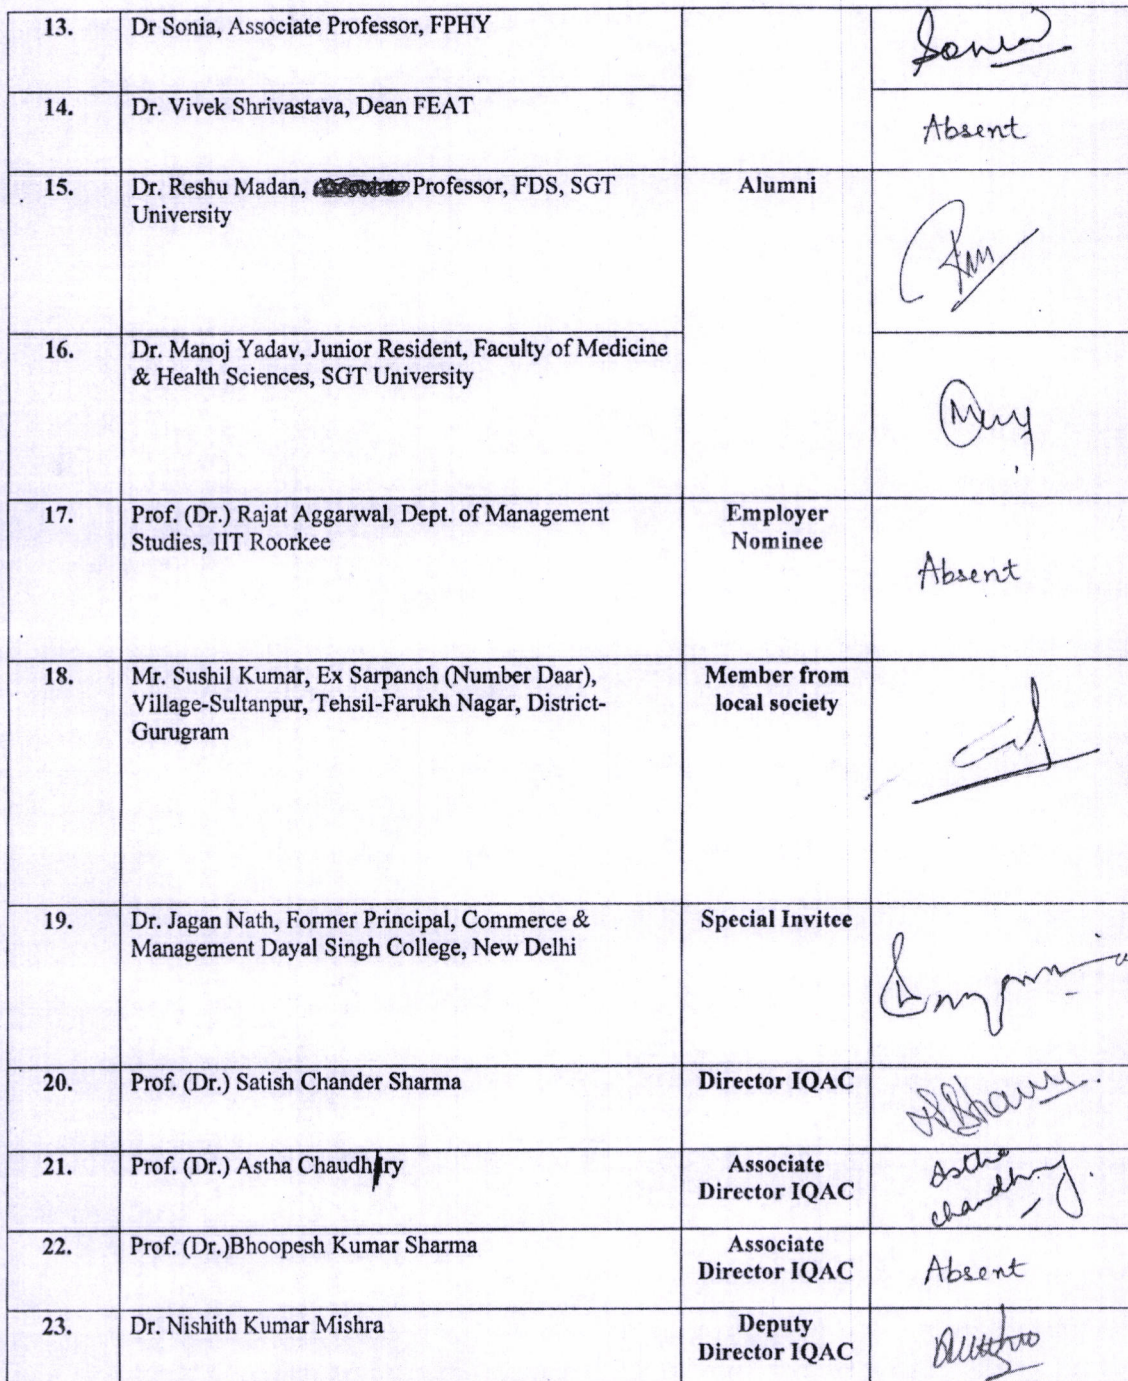 13. Dr Sonia, Associate Professor, FPHY
Sonia
14. Dr. Vivek Shrivastava, Dean FEAT
Absent
15. Dr. Reshu Madan, Professor, FDS, SGT
University
Alumni
16. Dr. Manoj Yadav, Junior Resident, Faculty of Medicine
& Health Sciences, SGT University
17. Prof. (Dr.) Rajat Aggarwal, Dept. of Management
Studies, IIT Roorkee
Employer
Nominee
Absent
18. Mr. Sushil Kumar, Ex Sarpanch (Number Daar),
Village-Sultanpur, Tehsil-Farukh Nagar, District-
Gurugram
Member from
local society
19. Dr. Jagan Nath, Former Principal, Commerce &
Management Dayal Singh College, New Delhi
Special Invitee
20. Prof. (Dr.) Satish Chander Sharma
Director IQAC
21. Prof. (Dr.) Astha Chaudhry
Associate
Director IQAC
Astha
Chaudhry
22. Prof. (Dr.)Bhoopesh Kumar Sharma
Associate
Director IQAC
Absent
23. Dr. Nishith Kumar Mishra
Deputy
Director IQAC